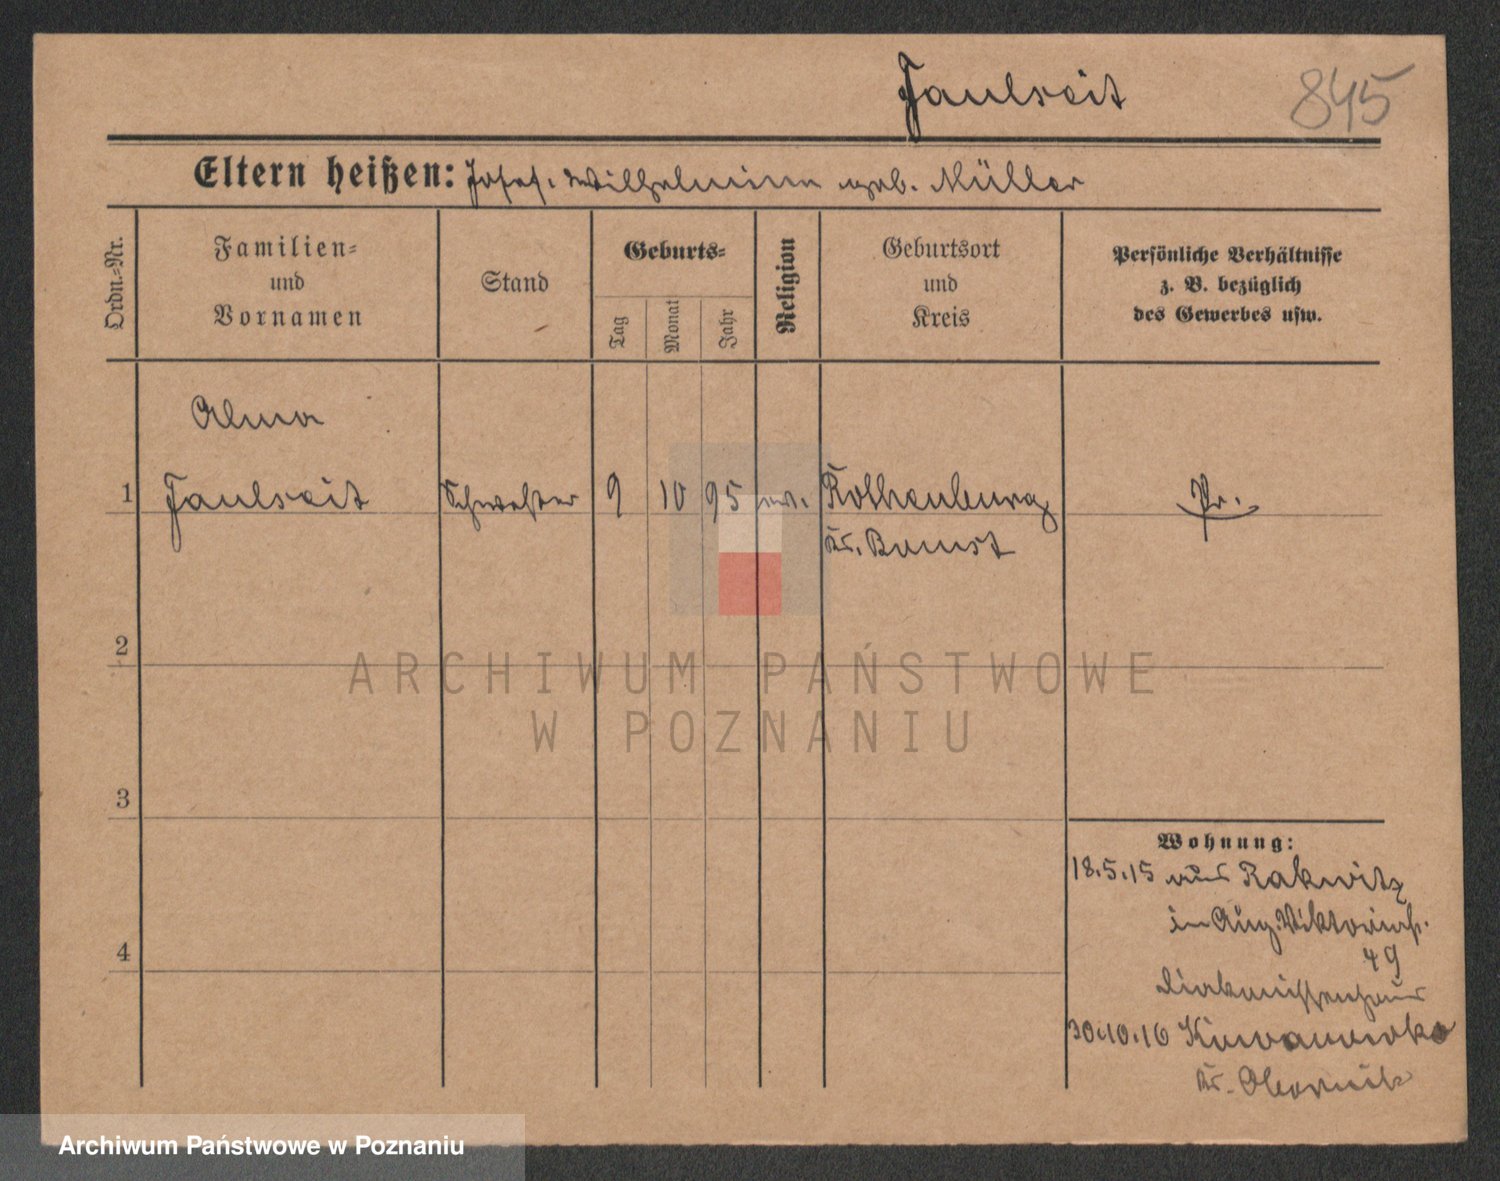 Faulseit
845
Eltern heißen: Josef. Wilhelmine geb. Müller
Ordn.-Nr.
Familien-
und
Vornamen
Stand
Geburts-
Tag
Monat
Jahr
Religion
Geburtsort
und
Kreis
Persönliche Verhältnisse
z. B. bezüglich
des Gewerbes usw.
Alma
1 Faulseit Schwester 9 10 95 ev. Rothenburg Pr.
Kr. Bomst
2
3
4
Wohnung:
18.5.15 aus Rakwitz
in Aug. Viktoriast.
49
Diakonissenhaus
30.10.16
Kr. Obornik
ARCHIWUM PAŃSTWOWE
W POZNANIU
Archiwum Państwowe w Poznaniu